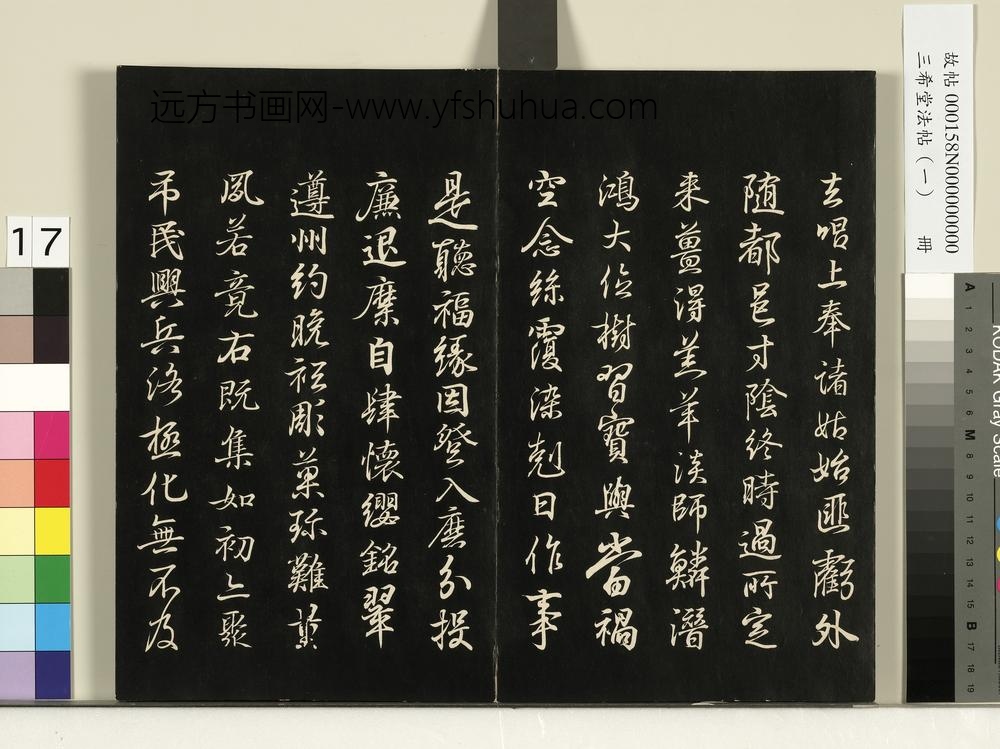 远方书画网-www.yfshuhua.com
故帖 000158N000000000
三希堂法帖（一） 冊
17
去唱上奉諸姑始匪虧外
随都邑寸陰終時過所定
来薑淂羔羊淡師鱗潛
鴻大位樹習寶與當禍
空念絲覆染剋日作事
是聽福緣因登入分投
廉退縻自肆懷纓銘翠
遵州約晚祗彫菓珎難
夙若竟右既集如初亦聚
吊民興兵洛極化無不及
KODAK Gray Scale
A 1 2 3 4 5 6 M 8 9 10 11 12 13 14 15 B 17 18 19